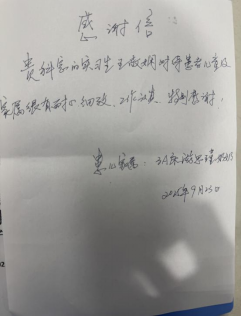 感谢信
贵科室的实习生王 对待患者儿童及
家属很有耐心细致、工作认真、特别感谢!
患儿家属:31床
2025年9月25日